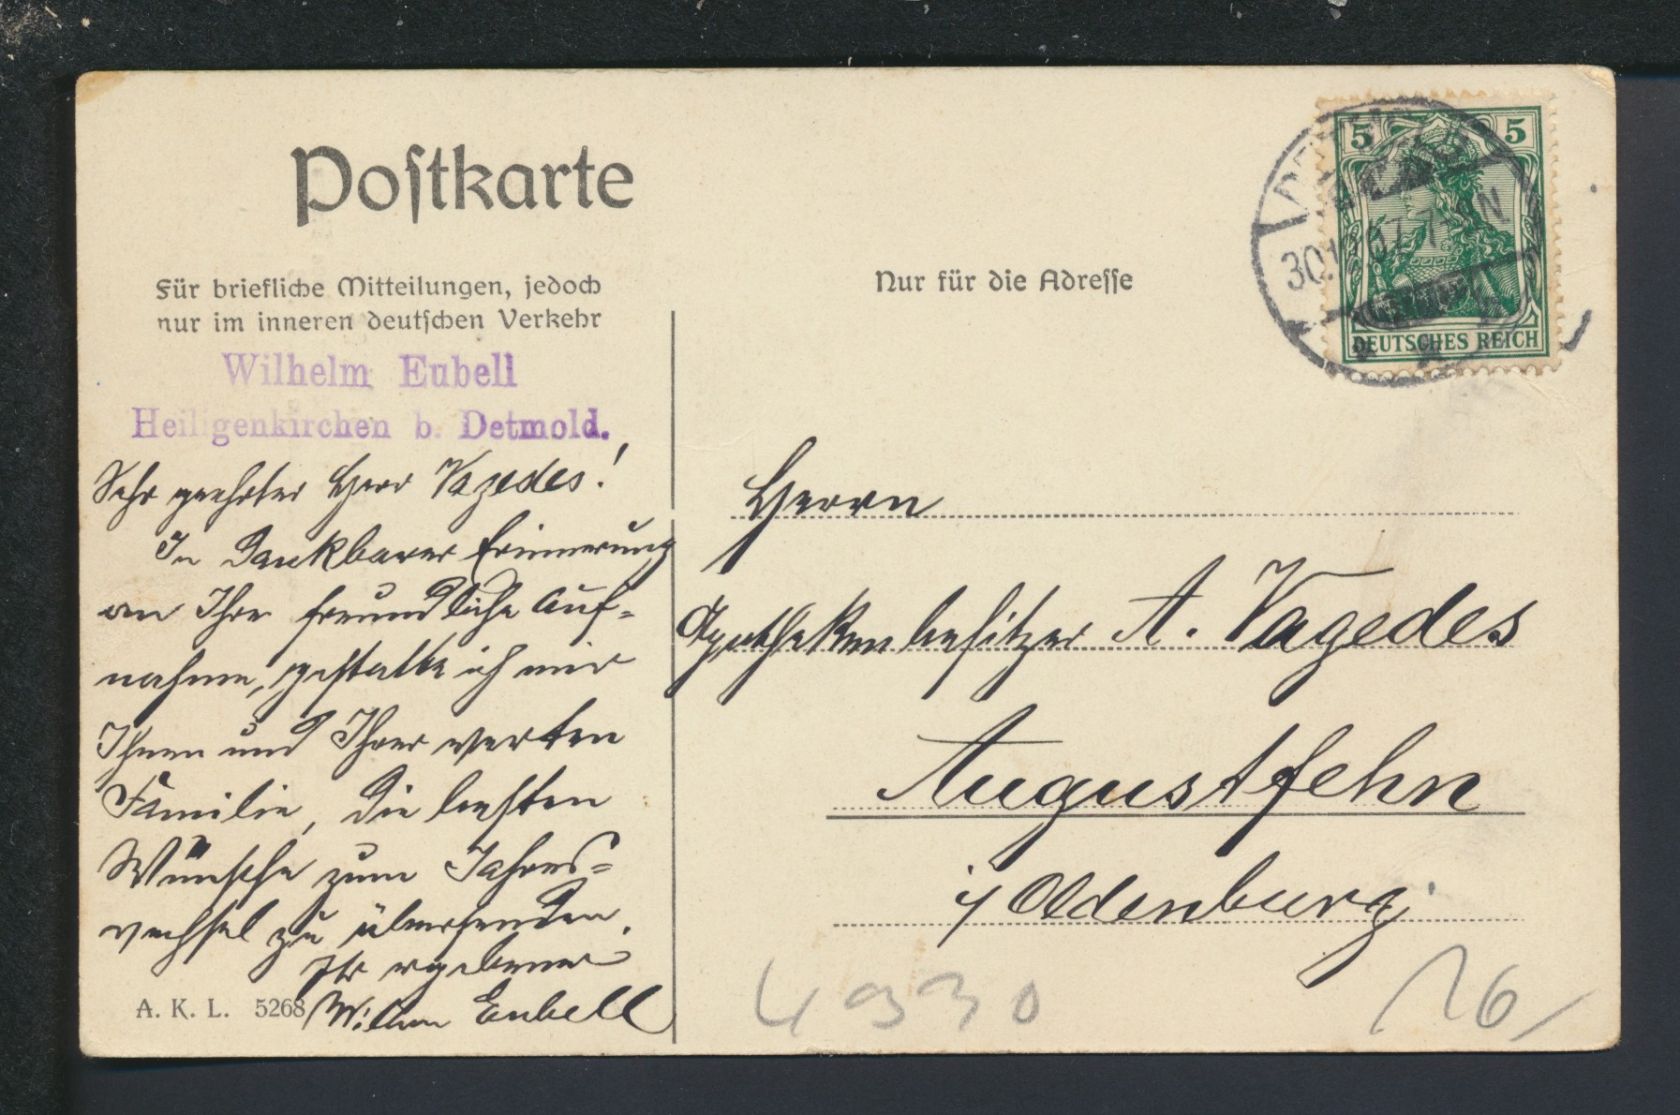 Postkarte
Für briefliche Mitteilungen, jedoch
nur im inneren deutschen Verkehr
Wilhelm Eubell
Heiligenkirchen b. Detmold.
Sehr geehrter Herr Vagedes!
In dankbarer Erinnerung
an Ihre freundliche Auf-
nahme, gestatte ich mir
Ihnen und Ihrer werten
Familie, die besten
Wünsche zum Jahres-
wechsel zu übersenden.
Ihr ergebener
Wilhem Eubell
A. K. L. 5268
Nur für die Adresse
5 5
DEUTSCHES REICH
Herrn
Apothekenbesitzer A. Vagedes
Augustfehn
i/Oldenburg.
4930
16